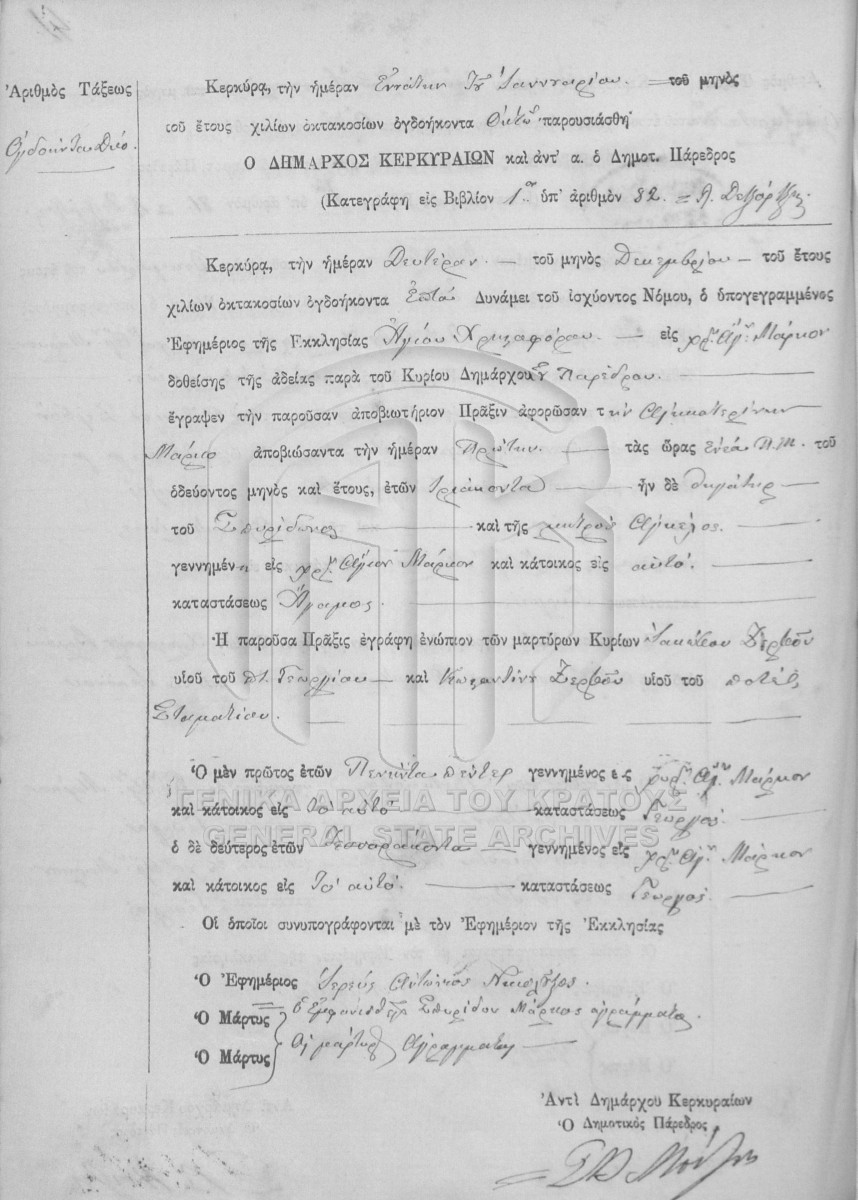 Ἀριθμὸς Τάξεως
Ὀγδοήντα Δύο.
Κερκύρᾳ, τὴν ἡμέραν Ἐννάτην Ἰανουαρίου τοῦ μηνὸς
τοῦ ἔτους χιλίων ὀκτακοσίων ὀγδοήκοντα Ὀκτὼ παρουσιάσθη
Ο ΔΗΜΑΡΧΟΣ ΚΕΡΚΥΡΑΙΩΝ καὶ ἀντ' α. ὁ Δημοτ. Πάρεδρος
(Κατεγράφη εἰς Βιβλίον 1ον ὑπ' ἀριθμὸν 82.
Κερκύρᾳ, τὴν ἡμέραν Δευτέραν τοῦ μηνὸς Δεκεμβρίου τοῦ ἔτους
χιλίων ὀκτακοσίων ὀγδοήκοντα Ἑπτὰ Δυνάμει τοῦ ἰσχύοντος Νόμου, ὁ ὑπογεγραμμένος
Ἐφημέριος τῆς Ἐκκλησίας Ἁγίου Χριστοφόρου εἰς χρ. Ἅγ. Μάρκον
δοθείσης τῆς ἀδείας παρὰ τοῦ Κυρίου Δημάρχου Παρέδρου
ἔγραψεν τὴν παροῦσαν ἀποβιωτήριον Πρᾶξιν ἀφορῶσαν τὴν Αἰκατερίνην
Μάρκο ἀποβιώσαντα τὴν ἡμέραν Πρώτην τὰς ὥρας ἐνέα Π.Μ. τοῦ
ὁδεύοντος μηνὸς καὶ ἔτους, ἐτῶν τριάκοντα ἦν δὲ θυγάτηρ
τοῦ Σπυρίδωνος καὶ τῆς μητρὸς
γεννημένη εἰς χρ. Ἅγιον Μάρκον καὶ κάτοικος εἰς αὐτό.
καταστάσεως Ἄγαμος
Ἡ παροῦσα Πρᾶξις ἐγράφη ἐνώπιον τῶν μαρτύρων Κυρίων Ἰακώβου Ζερβοῦ
υἱοῦ τοῦ Γεωργίου καὶ Κωσταντίνου Ζερβοῦ υἱοῦ τοῦ ποτὲ
Σταματίου.
Ὁ μὲν πρῶτος ἐτῶν Πενήντα γεννημένος εἰς χρ. Ἅγ. Μάρκον
καὶ κάτοικος εἰς τὸ αὐτό καταστάσεως Γεωργός.
ὁ δὲ δεύτερος ἐτῶν Τεσσαράκοντα γεννημένος εἰς χρ. Ἅγ. Μάρκον
καὶ κάτοικος εἰς τὸ αὐτό. καταστάσεως Γεωργός.
Οἱ ὁποῖοι συνυπογράφονται μὲ τὸν Ἐφημέριον τῆς Ἐκκλησίας
Ὁ Ἐφημέριος Ἱερεὺς
Ὁ Μάρτυς Ὁ Σπυρίδων Μάρκος ἀγράμματος.
Ὁ Μάρτυς Οἱ μάρτυρες ἀγράμματοι
Ἀντὶ Δημάρχου Κερκυραίων
Ὁ Δημοτικὸς Πάρεδρος
ΓΕΝΙΚΑ ΑΡΧΕΙΑ ΤΟΥ ΚΡΑΤΟΥΣ
GENERAL STATE ARCHIVES